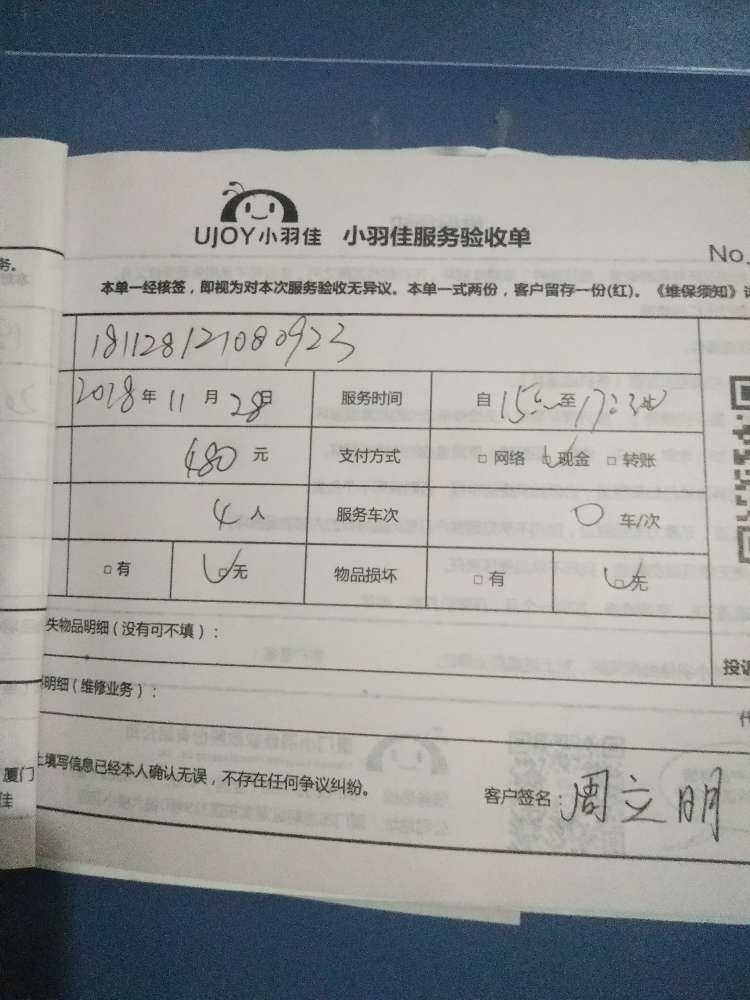 UJOY小羽佳 小羽佳服务验收单
No.
务。
本单一经核签，即视为对本次服务验收无异议。本单一式两份，客户留存一份(红)。《维保须知》
181128121080923
2018年11月28日 服务时间 自15:00至17:30
480元 支付方式 □网络 □现金 □转账
4人 服务车次 0车/次
□有 □无 物品损坏 □有 □无
失物品明细（没有可不填）：
投诉
明细（维修业务）：
代
填写信息已经本人确认无误，不存在任何争议纠纷。
客户签名：周立明
厦门
佳